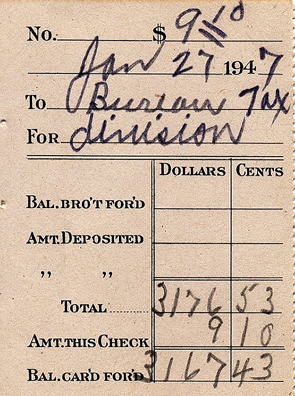 No. $ 9 10
Jan 27 1947
To Bureau Tax
For division
Dollars Cents
Bal. bro't for'd
Amt. Deposited
„ „
Total 3176 53
Amt. this Check 9 10
Bal. car'd for'd 3167 43